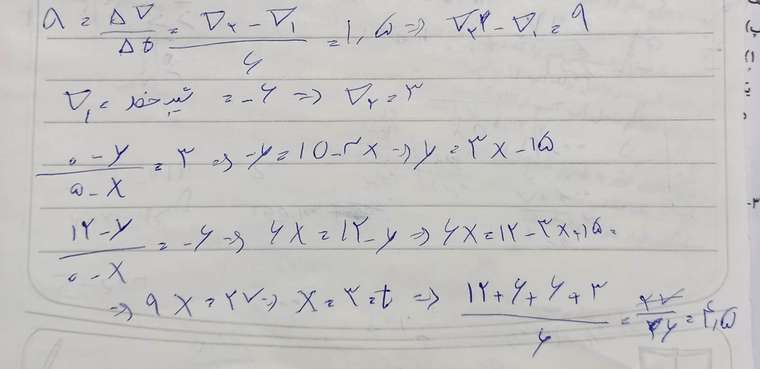 a = ΔV/Δt = (V₂ - V₁)/۶ = ۱,۵ ⇒ V₂ - V₁ = ۹
V₁ = شیب خط = -۶ ⇒ V₂ = ۳
(۰ - y)/(۵ - x) = ۳ ⇒ -y = ۱۵ - ۳x → y = ۳x - ۱۵
(۱۲ - y)/(۰ - x) = -۶ ⇒ ۶x = ۱۲ - y ⇒ ۶x = ۱۲ - ۳x + ۱۵
⇒ ۹x = ۲۷ ⇒ x = ۳ = t ⇒ (۱۲ + ۶ + ۶ + ۳)/۶ = ۲۷/۶ = ۴,۵